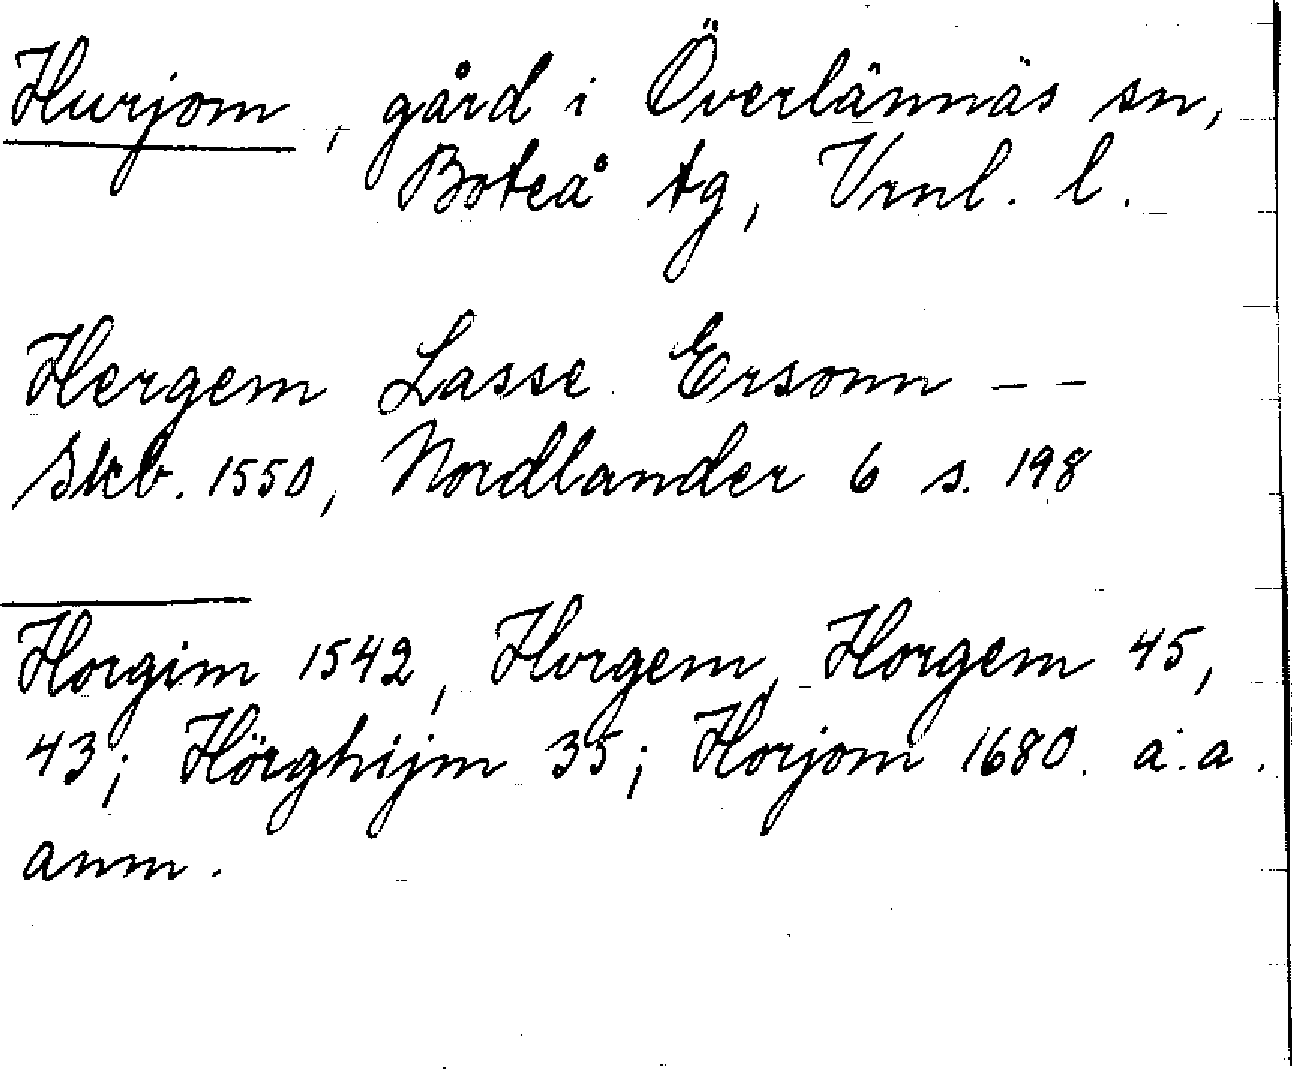 Hurjom, gård i Överlännäs sn,
Boteå tg, Vrnl. l.
Hergem Lasse Ersonn - -
Skb. 1550, Nordlander 6 s. 198
Horgim 1542, Hvrgem, Horgem 45,
43; Hörghijm 35; Horjom 1680. a.a.
anm.